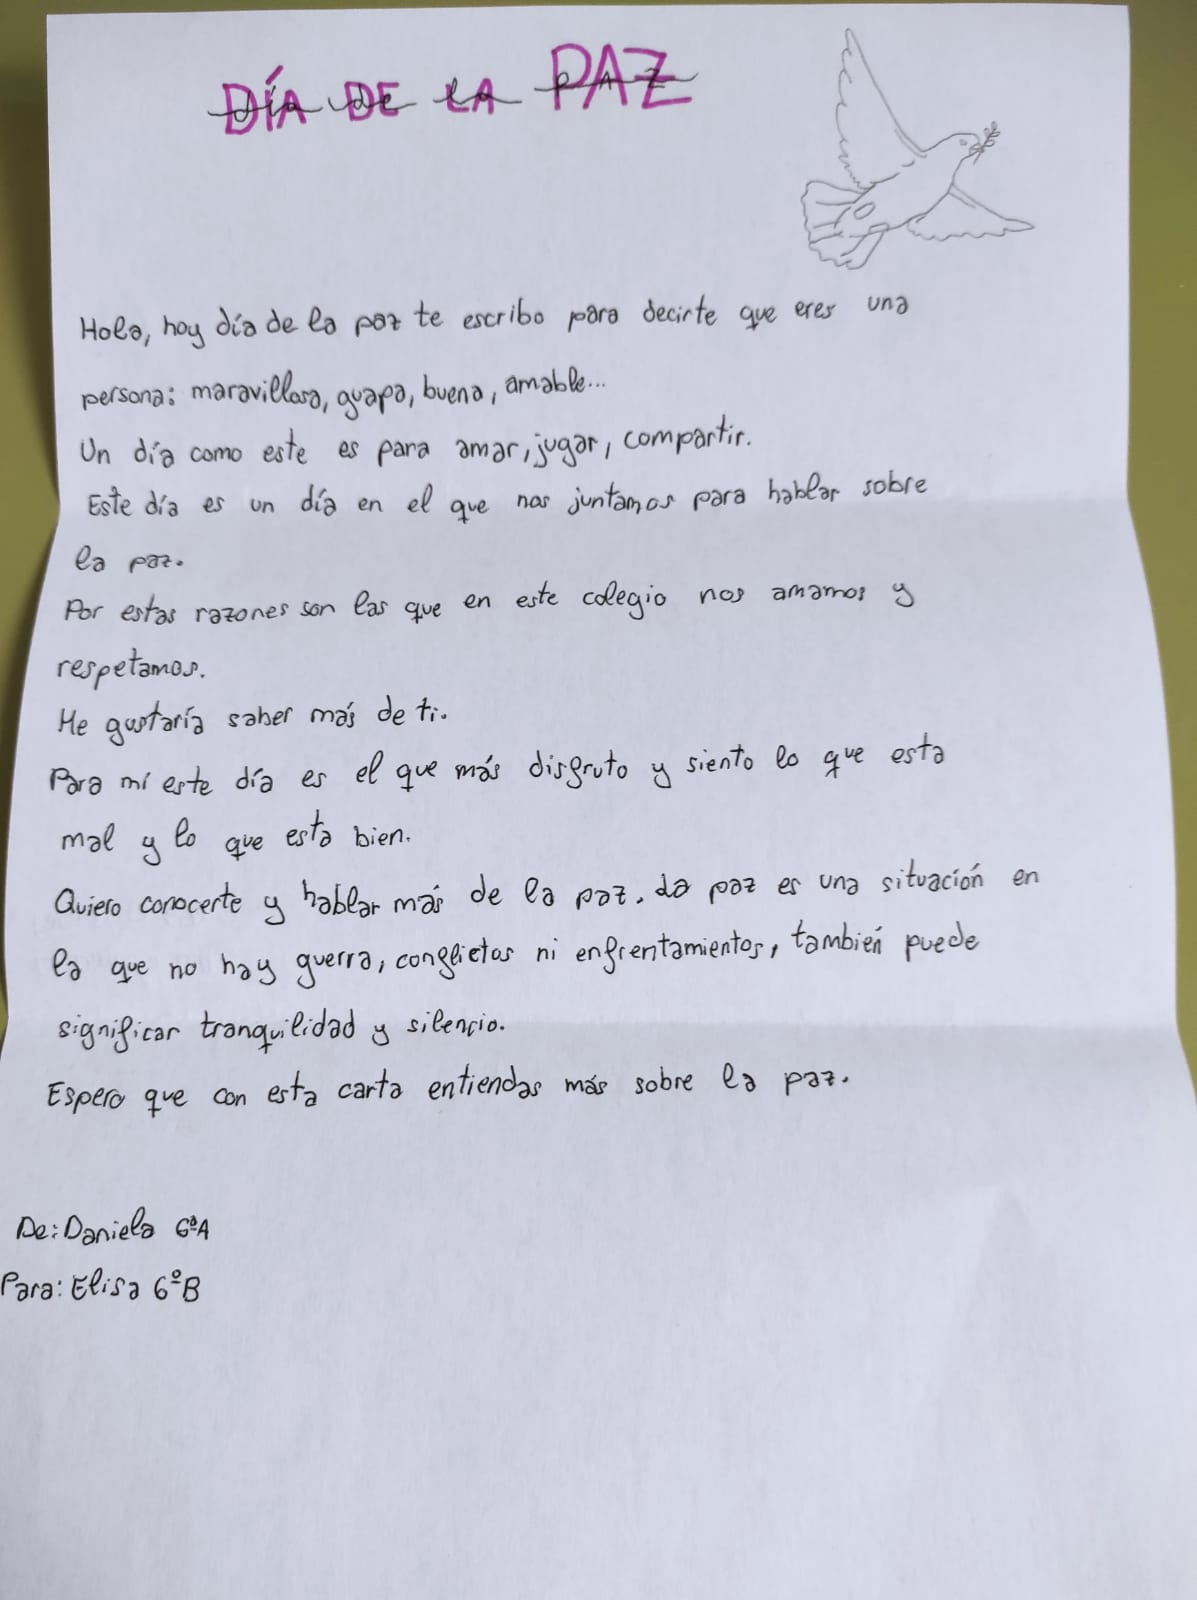 DÍA DE LA PAZ
Hola, hoy día de la paz te escribo para decirte que eres una
persona: maravillosa, guapa, buena, amable...
Un día como este es para amar, jugar, compartir.
Este día es un día en el que nos juntamos para hablar sobre
la paz.
Por estas razones son las que en este colegio nos amamos y
respetamos.
Me gustaría saber más de ti.
Para mí este día es el que más disfruto y siento lo que esta
mal y lo que esta bien.
Quiero conocerte y hablar más de la paz. La paz es una situación en
la que no hay guerra, conflictos ni enfrentamientos, también puede
significar tranquilidad y silencio.
Espero que con esta carta entiendas más sobre la paz.
De: Daniela 6ºA
Para: Elisa 6ºB